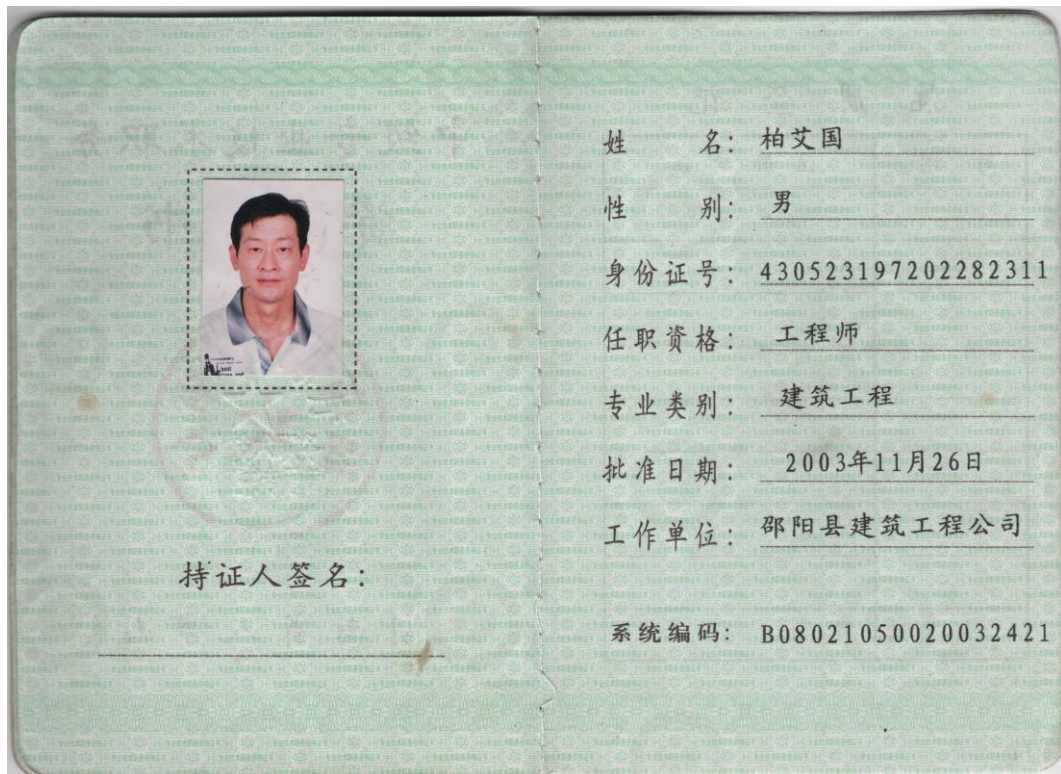 持证人签名：
姓 名： 柏艾国
性 别： 男
身份证号： 430523197202282311
任职资格： 工程师
专业类别： 建筑工程
批准日期： 2003年11月26日
工作单位： 邵阳县建筑工程公司
系统编码： B08021050020032421